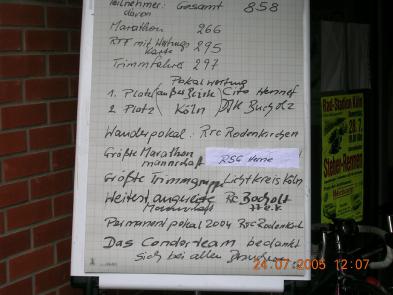 Teilnehmer: Gesamt 858
davon
Marathon 266
RTF mit Wertungs
karte 295
Trimmfahrer 297
Pokalwertung
1. Platz (außer Bezirk Cito Hennef
2. Platz Köln) DJK Bocholt
Wanderpokal: Rrc Rodenkirchen
Größte Marathon
mannschaft RSG Herne
Größte Trimmgruppe Lichtkreis Köln
Weitest angereiste Rc Bocholt
Mannschaft
Permanentpokal 2004 RrC Rodenkirch
Das Condorteam bedankt
sich bei allen
Rad-Station Köln
24.07.2005 12:07